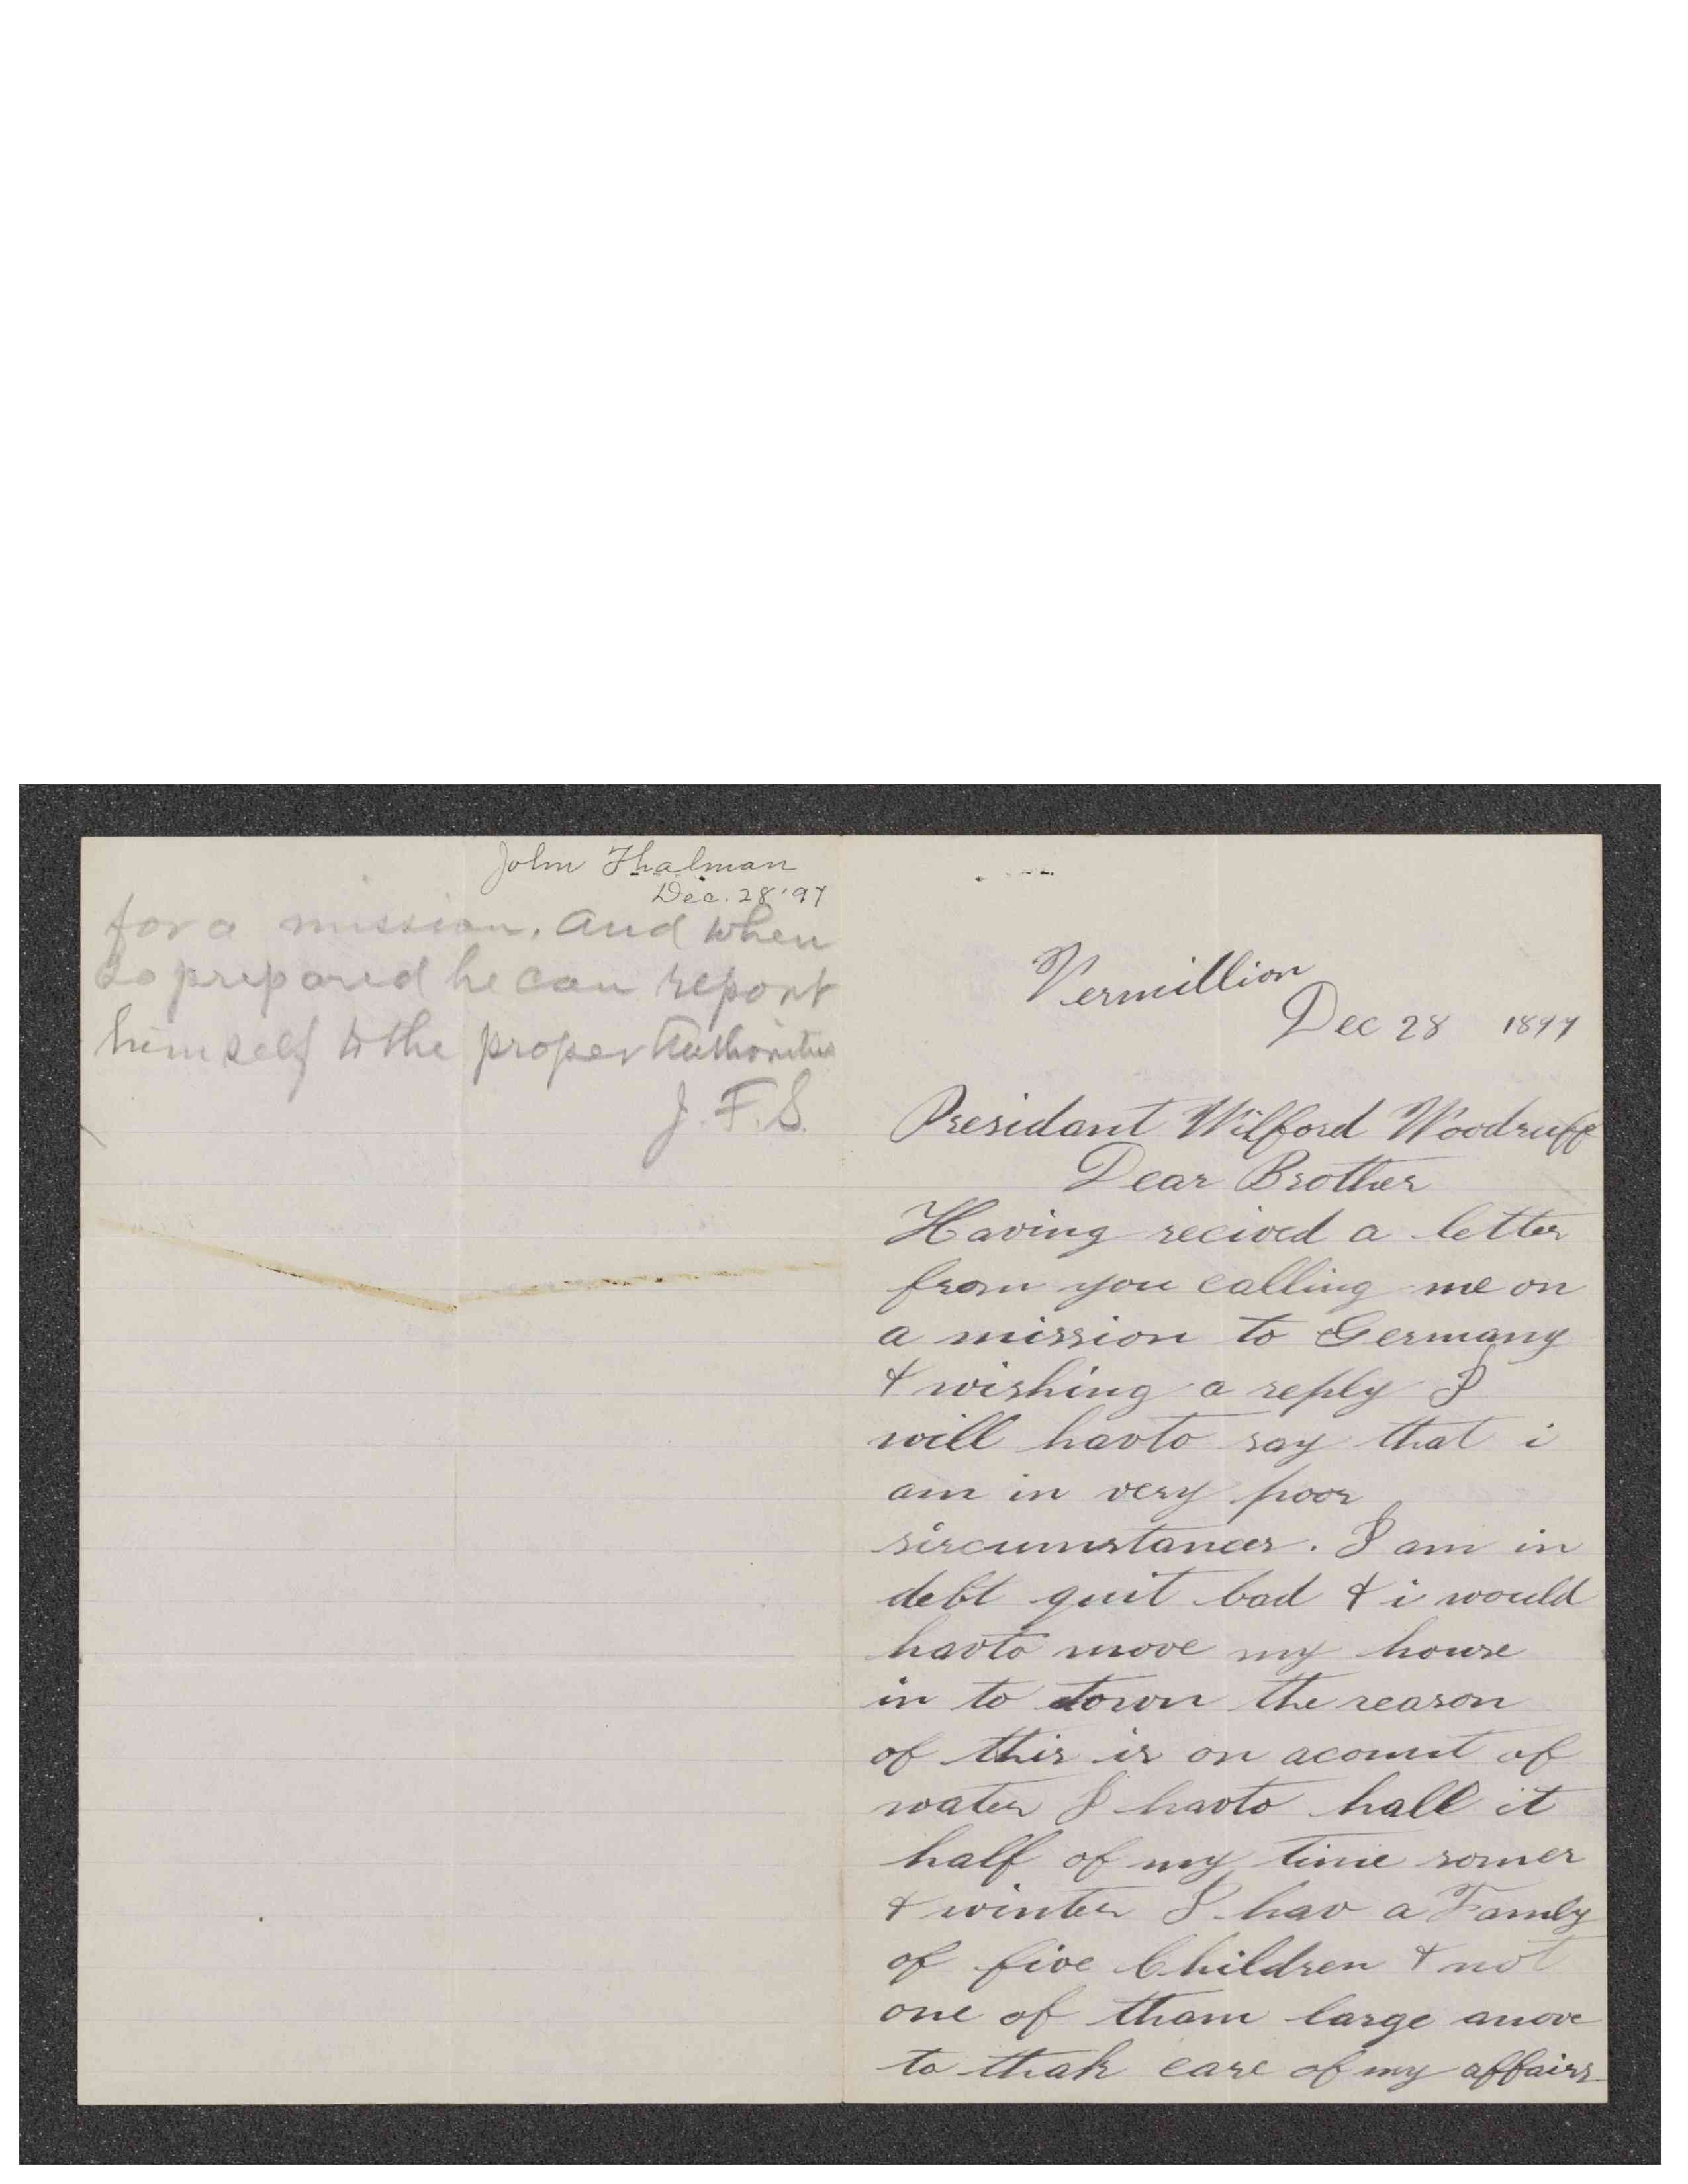 John Thalman
Dec. 28 '97
for a mission. And when
so prepared he can report
himself to the proper Authorities
J. F. S.
Vermillion
Dec 28 1897
Presidant Wilford Woodruff
Dear Brother
Having recived a letter
from you calling me on
a mission to Germany
& wishing a reply I
will havto say that i
am in very poor
sircumstances. I am in
debt quit bad & i would
havto move my house
in to town the reason
of this is on acount of
water I havto hall it
half of my time somer
& winter I hav a Famly
of five Children & not
one of tham large anove
to thak care of my affairs